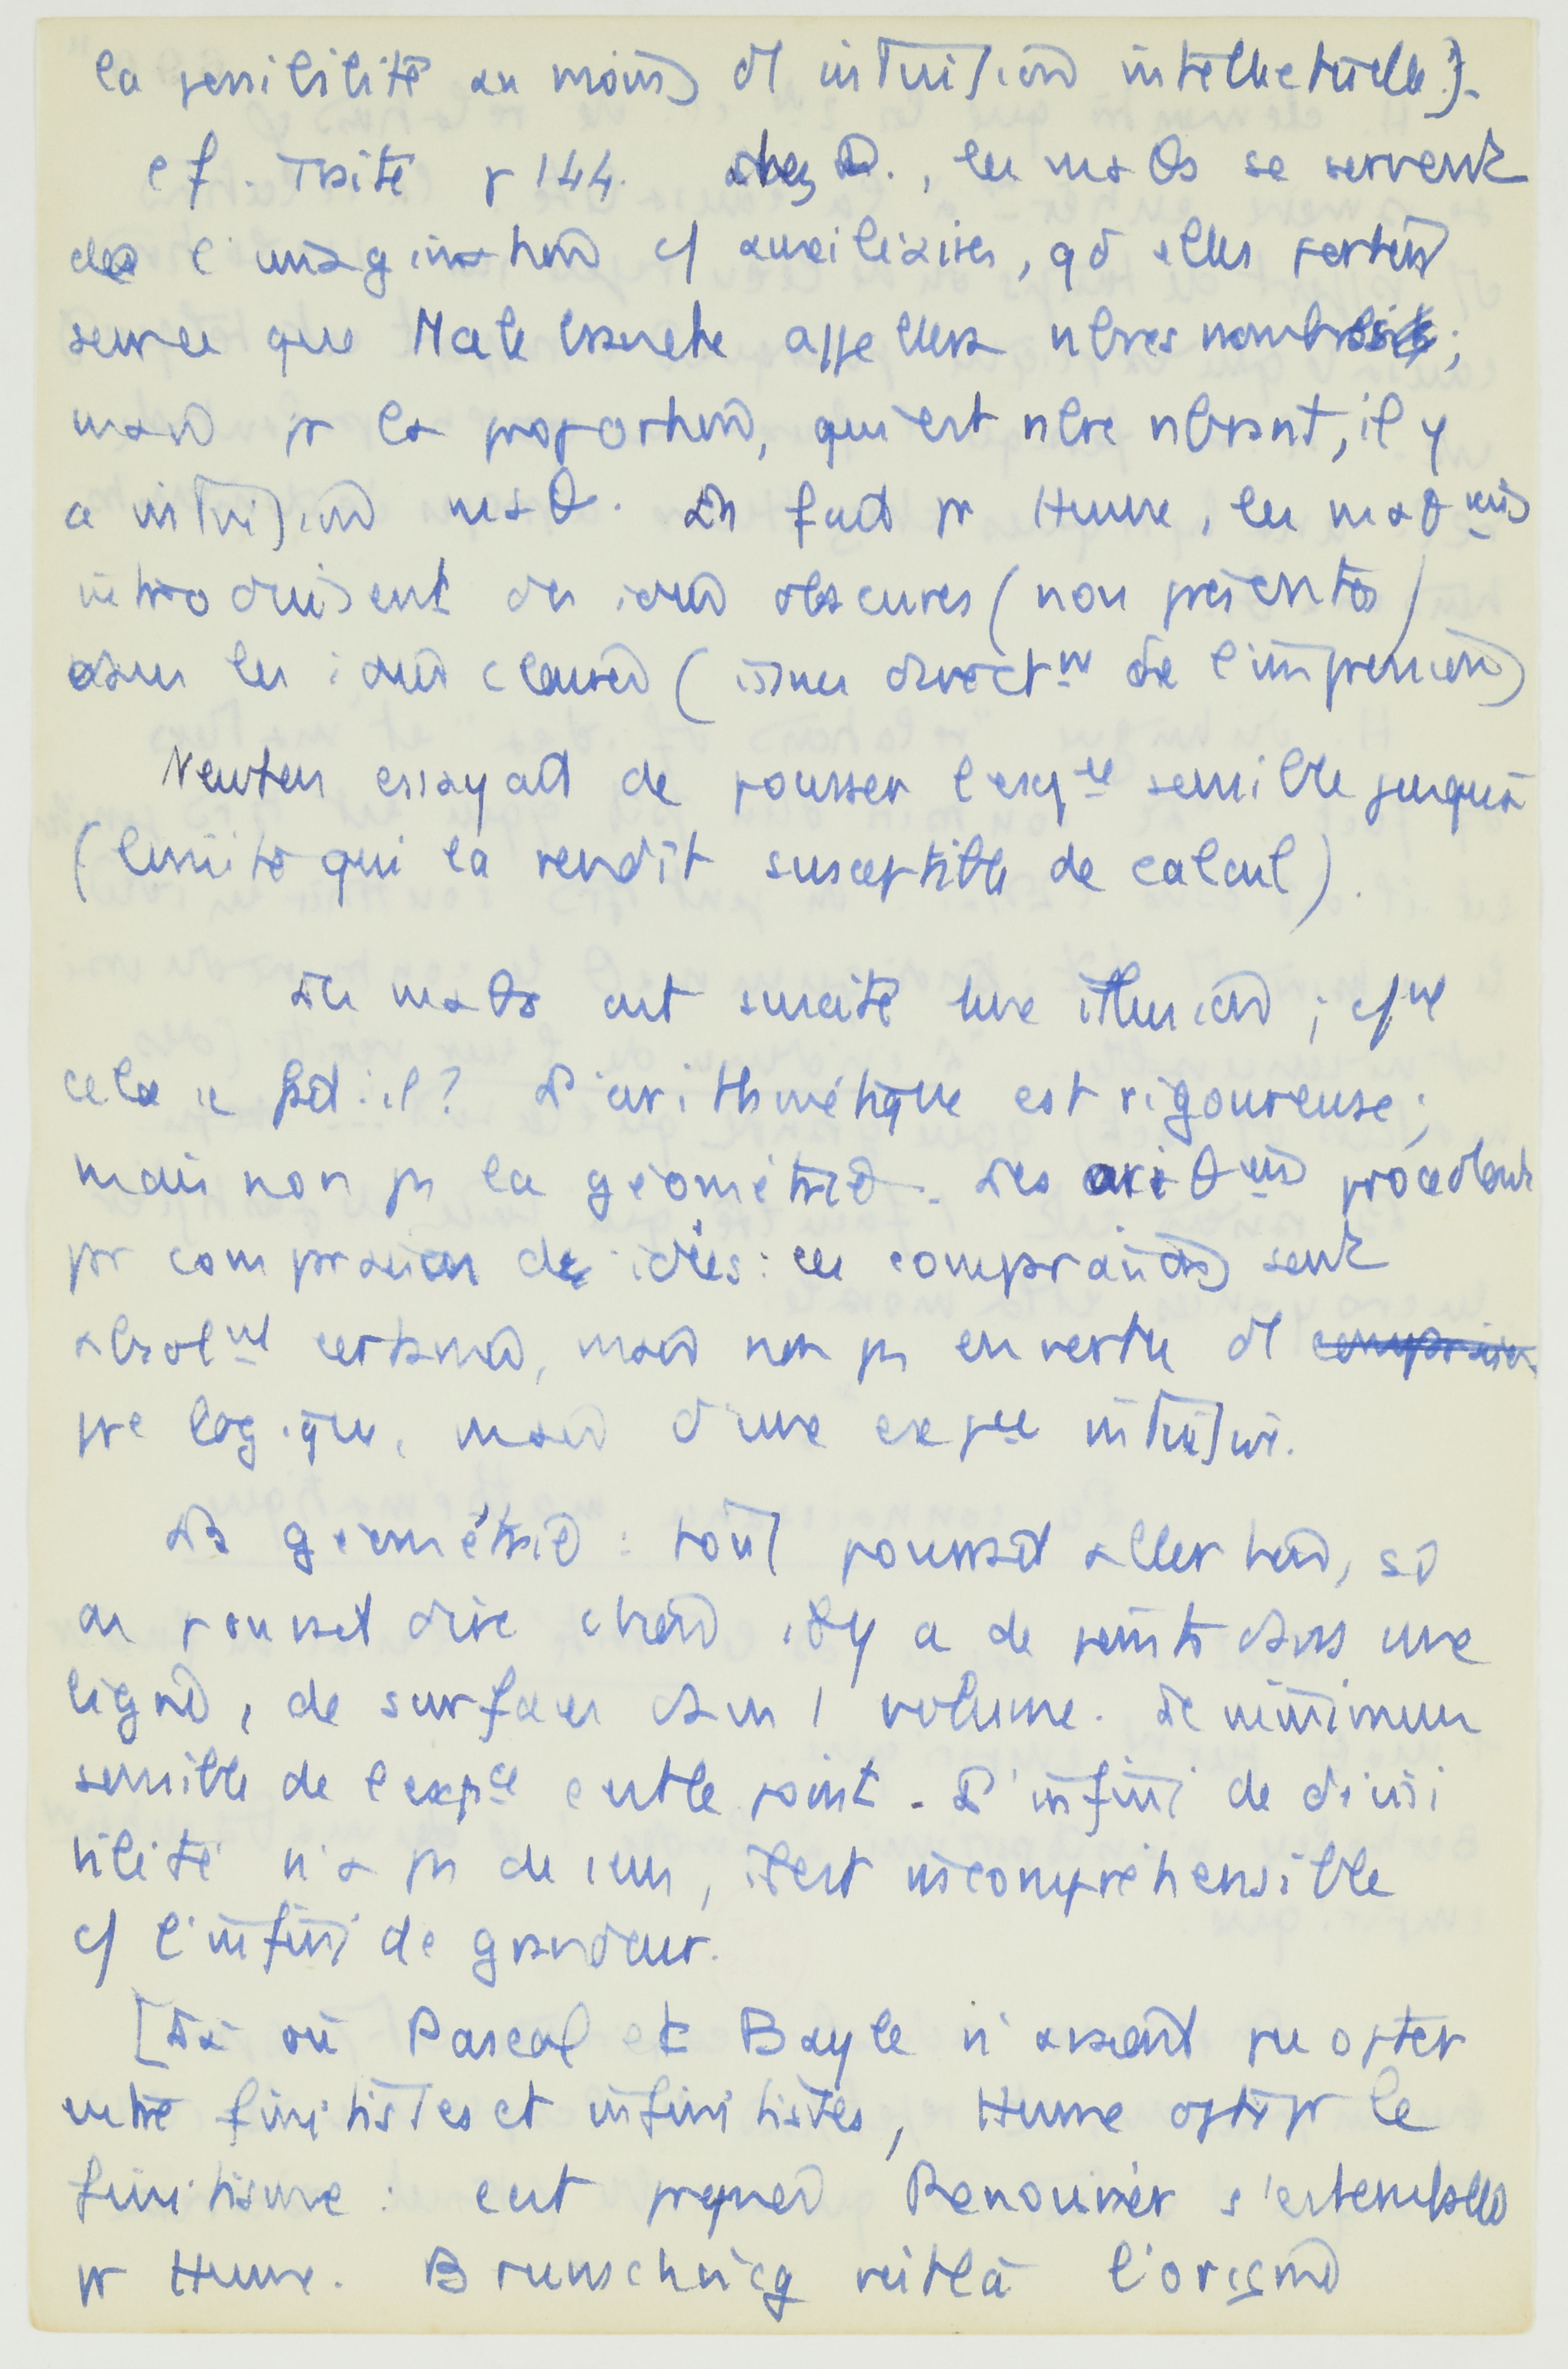 la possibilité au moins d'1 intuition intellectuelle].
cf. Traité p 144. chez D., les maθs se servent
de l'imagination c/ auxiliaires, qd elles portent
sur ce que Malebranche appellera nbres nombrés;
mais pr la proportion, qui est nbre nbrant, il y
a intuition maθ. En fait pr Hume, les maθ^ens
introduisent des idées obscures (non présentes)
dans les idées claires (issues direct^nt de l'impression)
Newton essayait de pousser l'exp^ce sensible jusqu'à
(limite qui la rendît susceptible de calcul).
Les maθs ont suscité une illusion ; c/^nt
cela se fait-il ? L'arithmétique est rigoureuse ;
mais non pas la géométrie. Les ariθ^ens procèdent
par comparaison de idées : ces comparaisons sont
absol^nt certaines, mais non pas en vertu d'1 comparaison
pce logique, mais d'une exp^ce intuitive.
La géométrie : tout pourrait aller bien, si
on pouvait dire combien il y a de points dans une
ligne, de surfaces dans 1 volume. Le minimum
sensible de l'exp^ce c'est le point. L'infini de divisi
bilité n'a pas de sens, il est incompréhensible
c/ l'infini de grandeur.
[Là où Pascal et Bayle n'avaient pu opter
entre finitistes et infinitistes, Hume opte pr le
finitisme : c'est pourquoi Renouvier s'est emballé
pr Hume. Brunschvicg voit là l'origine